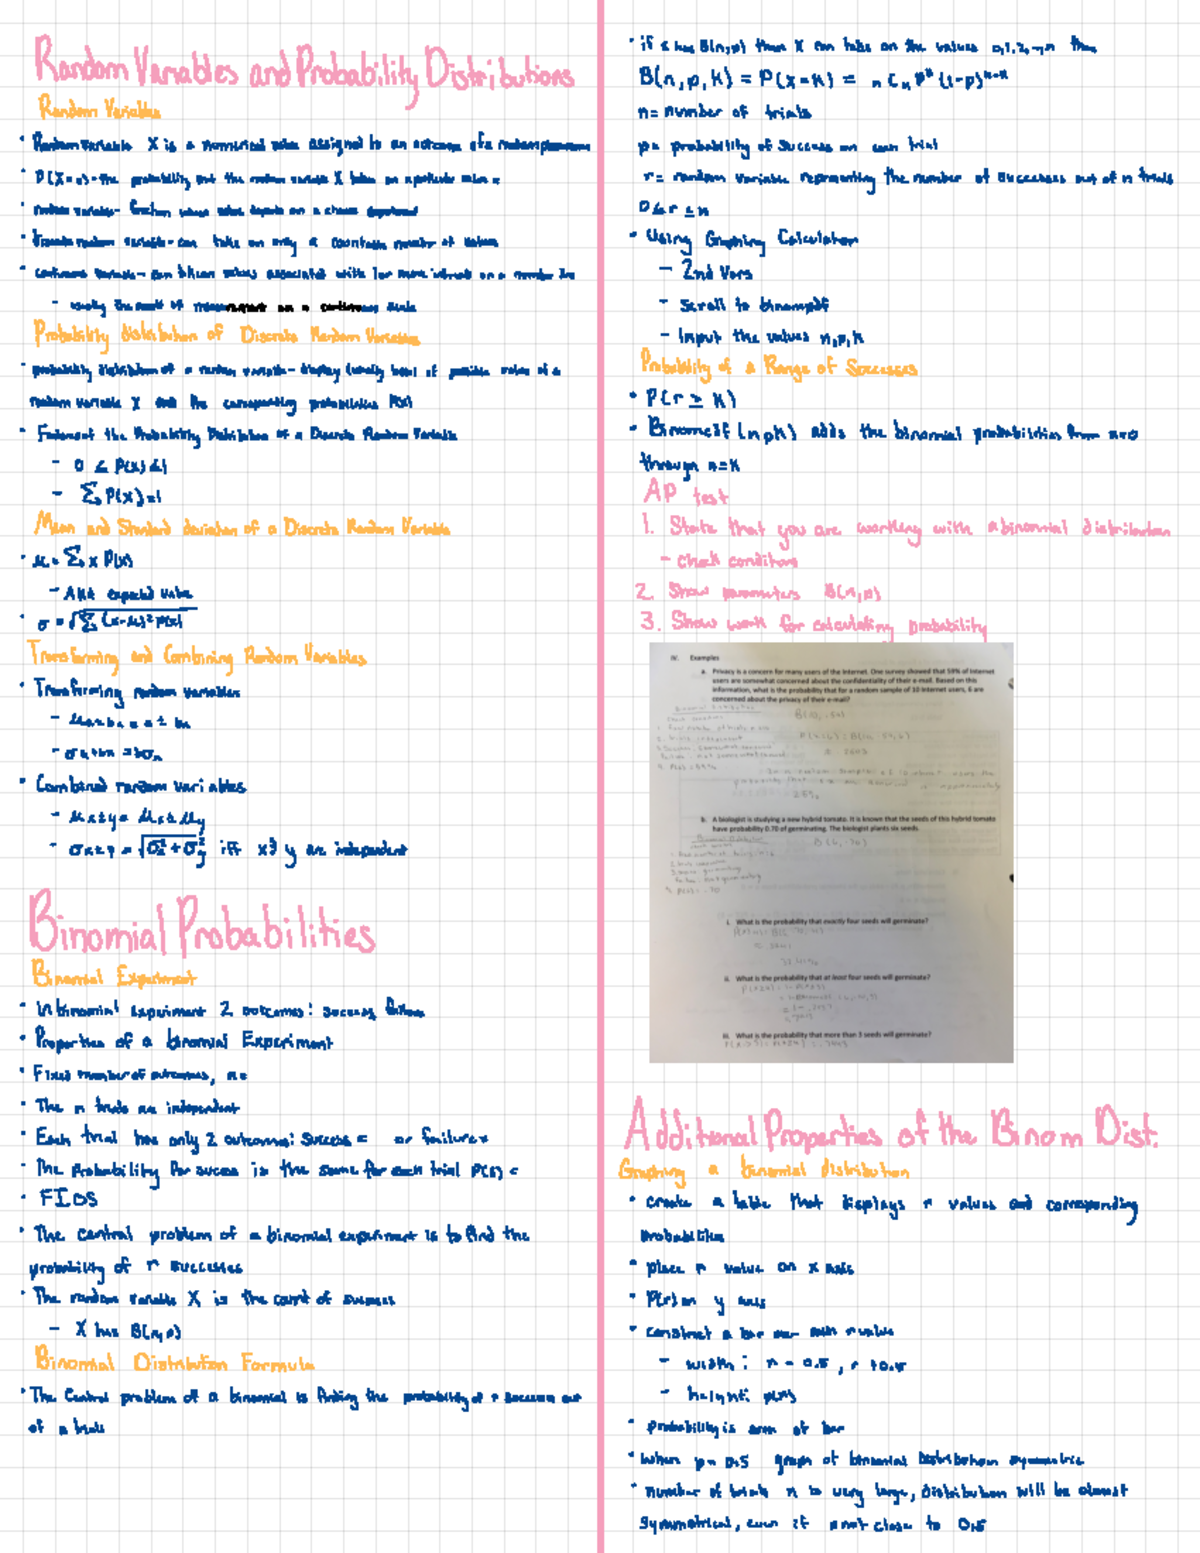 Random Variables and Probability Distributions
Random Variables
• Random variable X is a numerical value assigned to an outcome of a random phenomenon
• P(X=x)-the probability that the random variable X takes on a particular value x
• random variable- function whose value depends on a chance
• Discrete random variable-can take on only a countable number of values
• continuous variable- can take values associated with 1 or more intervals on a number line
- usually the result of measurement on a continuous scale
Probability distribution of Discrete Random Variables
• probability distribution of a random variable- display (usually of possible values of a
random variable X and the corresponding probabilities P(x)
• the Probability Distribution of a Discrete Random Variable
- 0 ≤ P(x) ≤ 1
- ∑ P(x)=1
Mean and Standard deviation of a Discrete Random Variable
• μ = ∑ x P(x)
- AKA expected value
• σ = √∑(x-μ)² P(x)
Transforming and Combining Random Variables
• Transforming random variables
• Combined random variables
- μx±y = μx ± μy
- σx±y = √σx² + σy² iff x & y are independent
Binomial Probabilities
Binomial Experiment
• In binomial experiment 2 outcomes: success, failure
• Properties of a binomial Experiment
• Fixed number of outcomes, n=
• The n trials are independent
• Each trial has only 2 outcomes: success = or failure=
• The Probability for success is the same for each trial P(s) =
• FIOS
• The central problem of a binomial experiment is to find the
probability of r successes
• The random variable X is the count of successes
- X has B(n,p)
Binomial Distribution Formula
• The Central problem of a binomial is finding the probability of r successes out
of n trials
• if x has B(n,p) then X can take on the values 0,1,2,...,n then
B(n, p, k) = P(x=k) = nCk p^k (1-p)^n-k
n= number of trials
p= probability of success on each trial
r= random variable representing the number of successes out of n trials
0≤r≤n
• Using Graphing Calculator
- 2nd Vars
- scroll to binompdf
- Input the values n,p,k
Probability of a Range of Successes
• P(r ≥ k)
• Binomcdf (n,p,k) adds the binomial probabilities from n=0
through n=k
AP test
1. State that you are working with a binomial distribution
- check conditions
2. Show parameters B(n,p)
3. Show work for calculating probability
IV. Examples
a. Privacy is a concern for many users of the Internet. One survey showed that 59% of Internet
users are somewhat concerned about the confidentiality of their e-mail. Based on this
information, what is the probability that for a random sample of 10 Internet users, 6 are
concerned about the privacy of their e-mail?
b. A biologist is studying a new hybrid tomato. It is known that the seeds of this hybrid tomato
have probability 0.70 of germinating. The biologist plants six seeds.
B(6, .70)
i. What is the probability that exactly four seeds will germinate?
ii. What is the probability that at least four seeds will germinate?
iii. What is the probability that more than 3 seeds will germinate?
Additional Properties of the Binom Dist.
Graphing a binomial distribution
• create a table that displays r values and corresponding
probabilities
• place r value on x axis
• P(r) on y axis
• construct a bar over each r value
- width: r - 0.5, r +0.5
- height: p(r)
• probability is area of bar
• when p= 0.5 graph of binomial distribution symmetric
• number of trials n is very large, distribution will be almost
symmetrical, even if p not close to 0.5